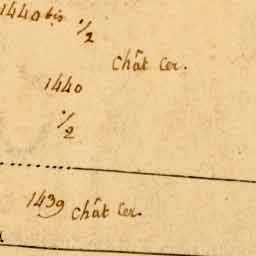 1440 bis 1/2
Chât Cer.
1440
1/2
1439 Chât Cer.